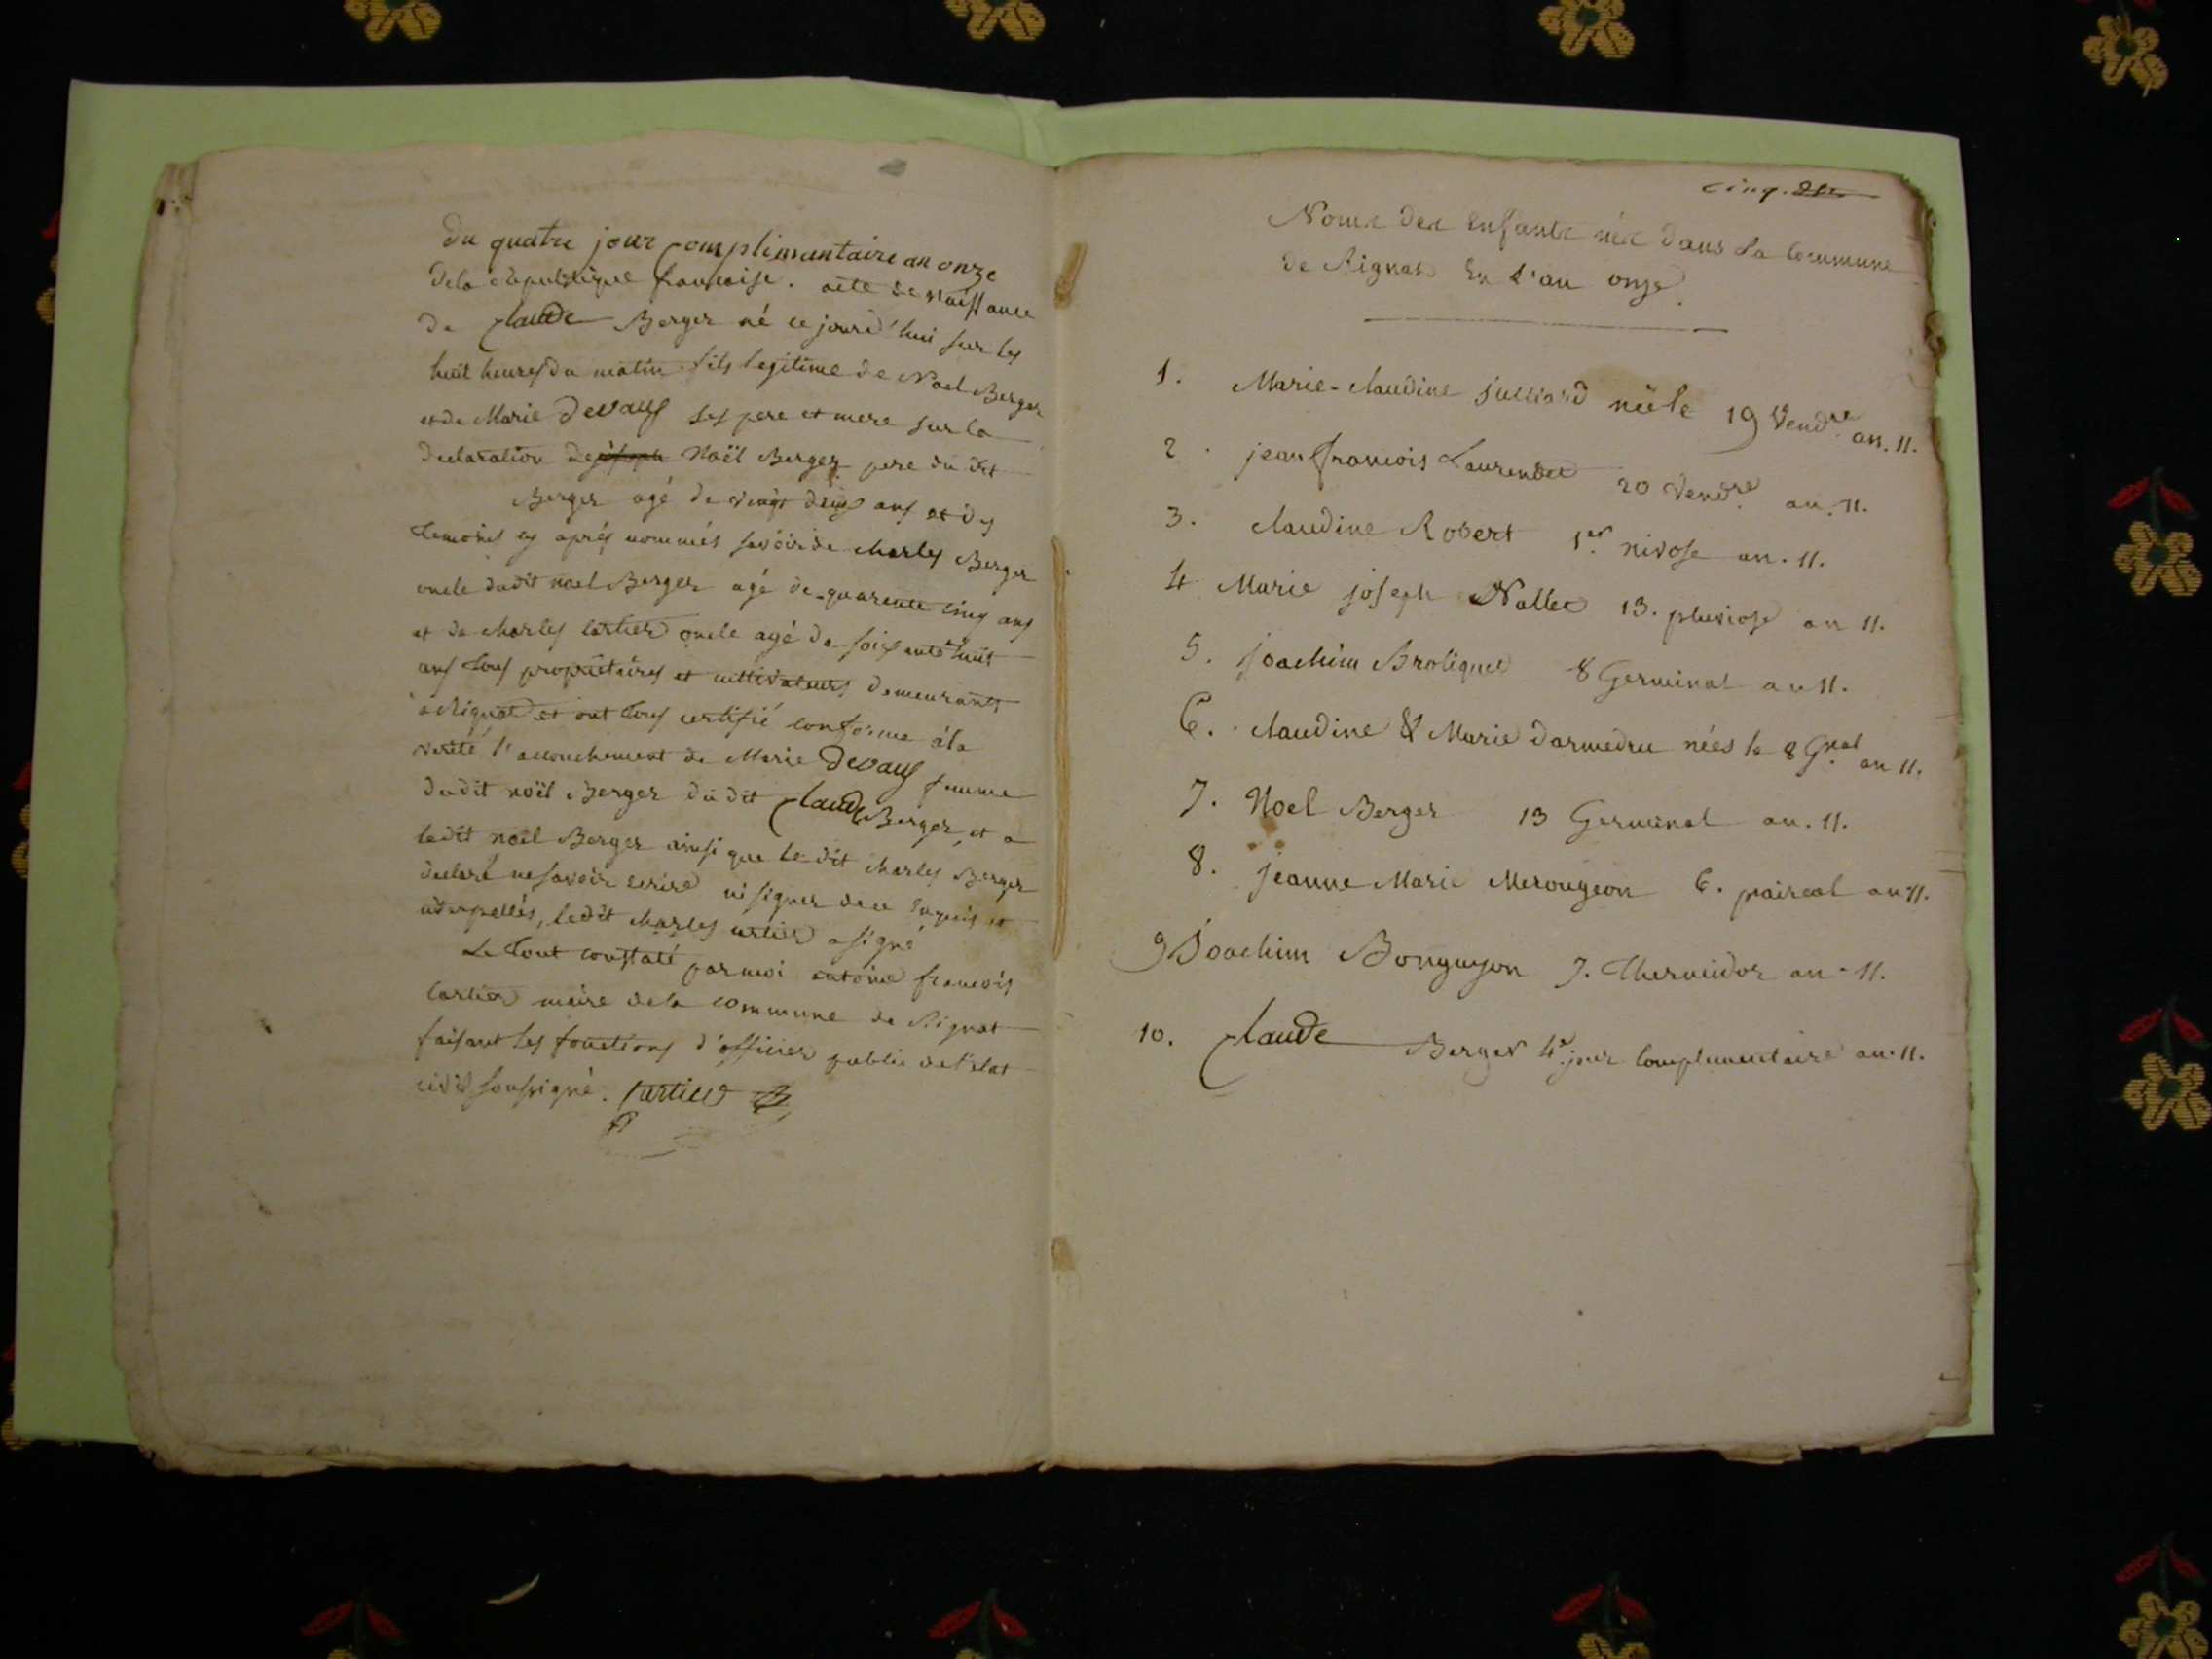 du quatre jour complimantaire an onze
dela republique francaise. acte de naissance
de Claude Berger né ce jourd'hui sur les
huit heures du matin fils legitime de Noel Berger
et de Marie Devaux ses pere et mere sur la
declaration de joseph Noël Berger pere du dit
Berger agé de vingt deux ans et des
temoins cy aprés nommés savoir de charles Berger
oncle dudit noel Berger agé de quarente cinq ans
et de charles Cartier oncle agé de soixante huit
ans tous propriétaires et cultivateurs demeurants
a Rignat et ont tous certifié conforme à la
verité l'accouchement de Marie Devaux femme
dudit noël Berger du dit Claude Berger, et a
ledit noël Berger ainsi que le dit charles Berger
declaré ne savoir ecrire ni signer de ce enquis et
interpellés, le dit charles cartier a signé
Le tout constaté par moi antoine francois
Cartier maire de la commune de Rignat
faisant les fonctions d'officier public de l'etat
civil soussigné. Cartier
cinq.
Noms des Enfants nés dans La Commune
de Rignat En L'an onze.
1. Marie-claudine julliard née le 19 Vendre an. 11.
2. jean francois Laurendet 20 Vendre an. 11.
3. claudine Robert 1er nivose an. 11.
4 Marie joseph Nallet 13. pluviose an 11.
5. joachim Broliquet 8 Germinal an 11.
6. claudine & Marie darmedru nées le 8 Gnal an 11.
7. Noel Berger 13 Germinal an. 11.
8. jeanne Marie Merougeon 6. paireal an 11.
9 Joachim Bonguyon 7. Thermidor an. 11.
10. Claude Berger 4e jour complementaire an. 11.